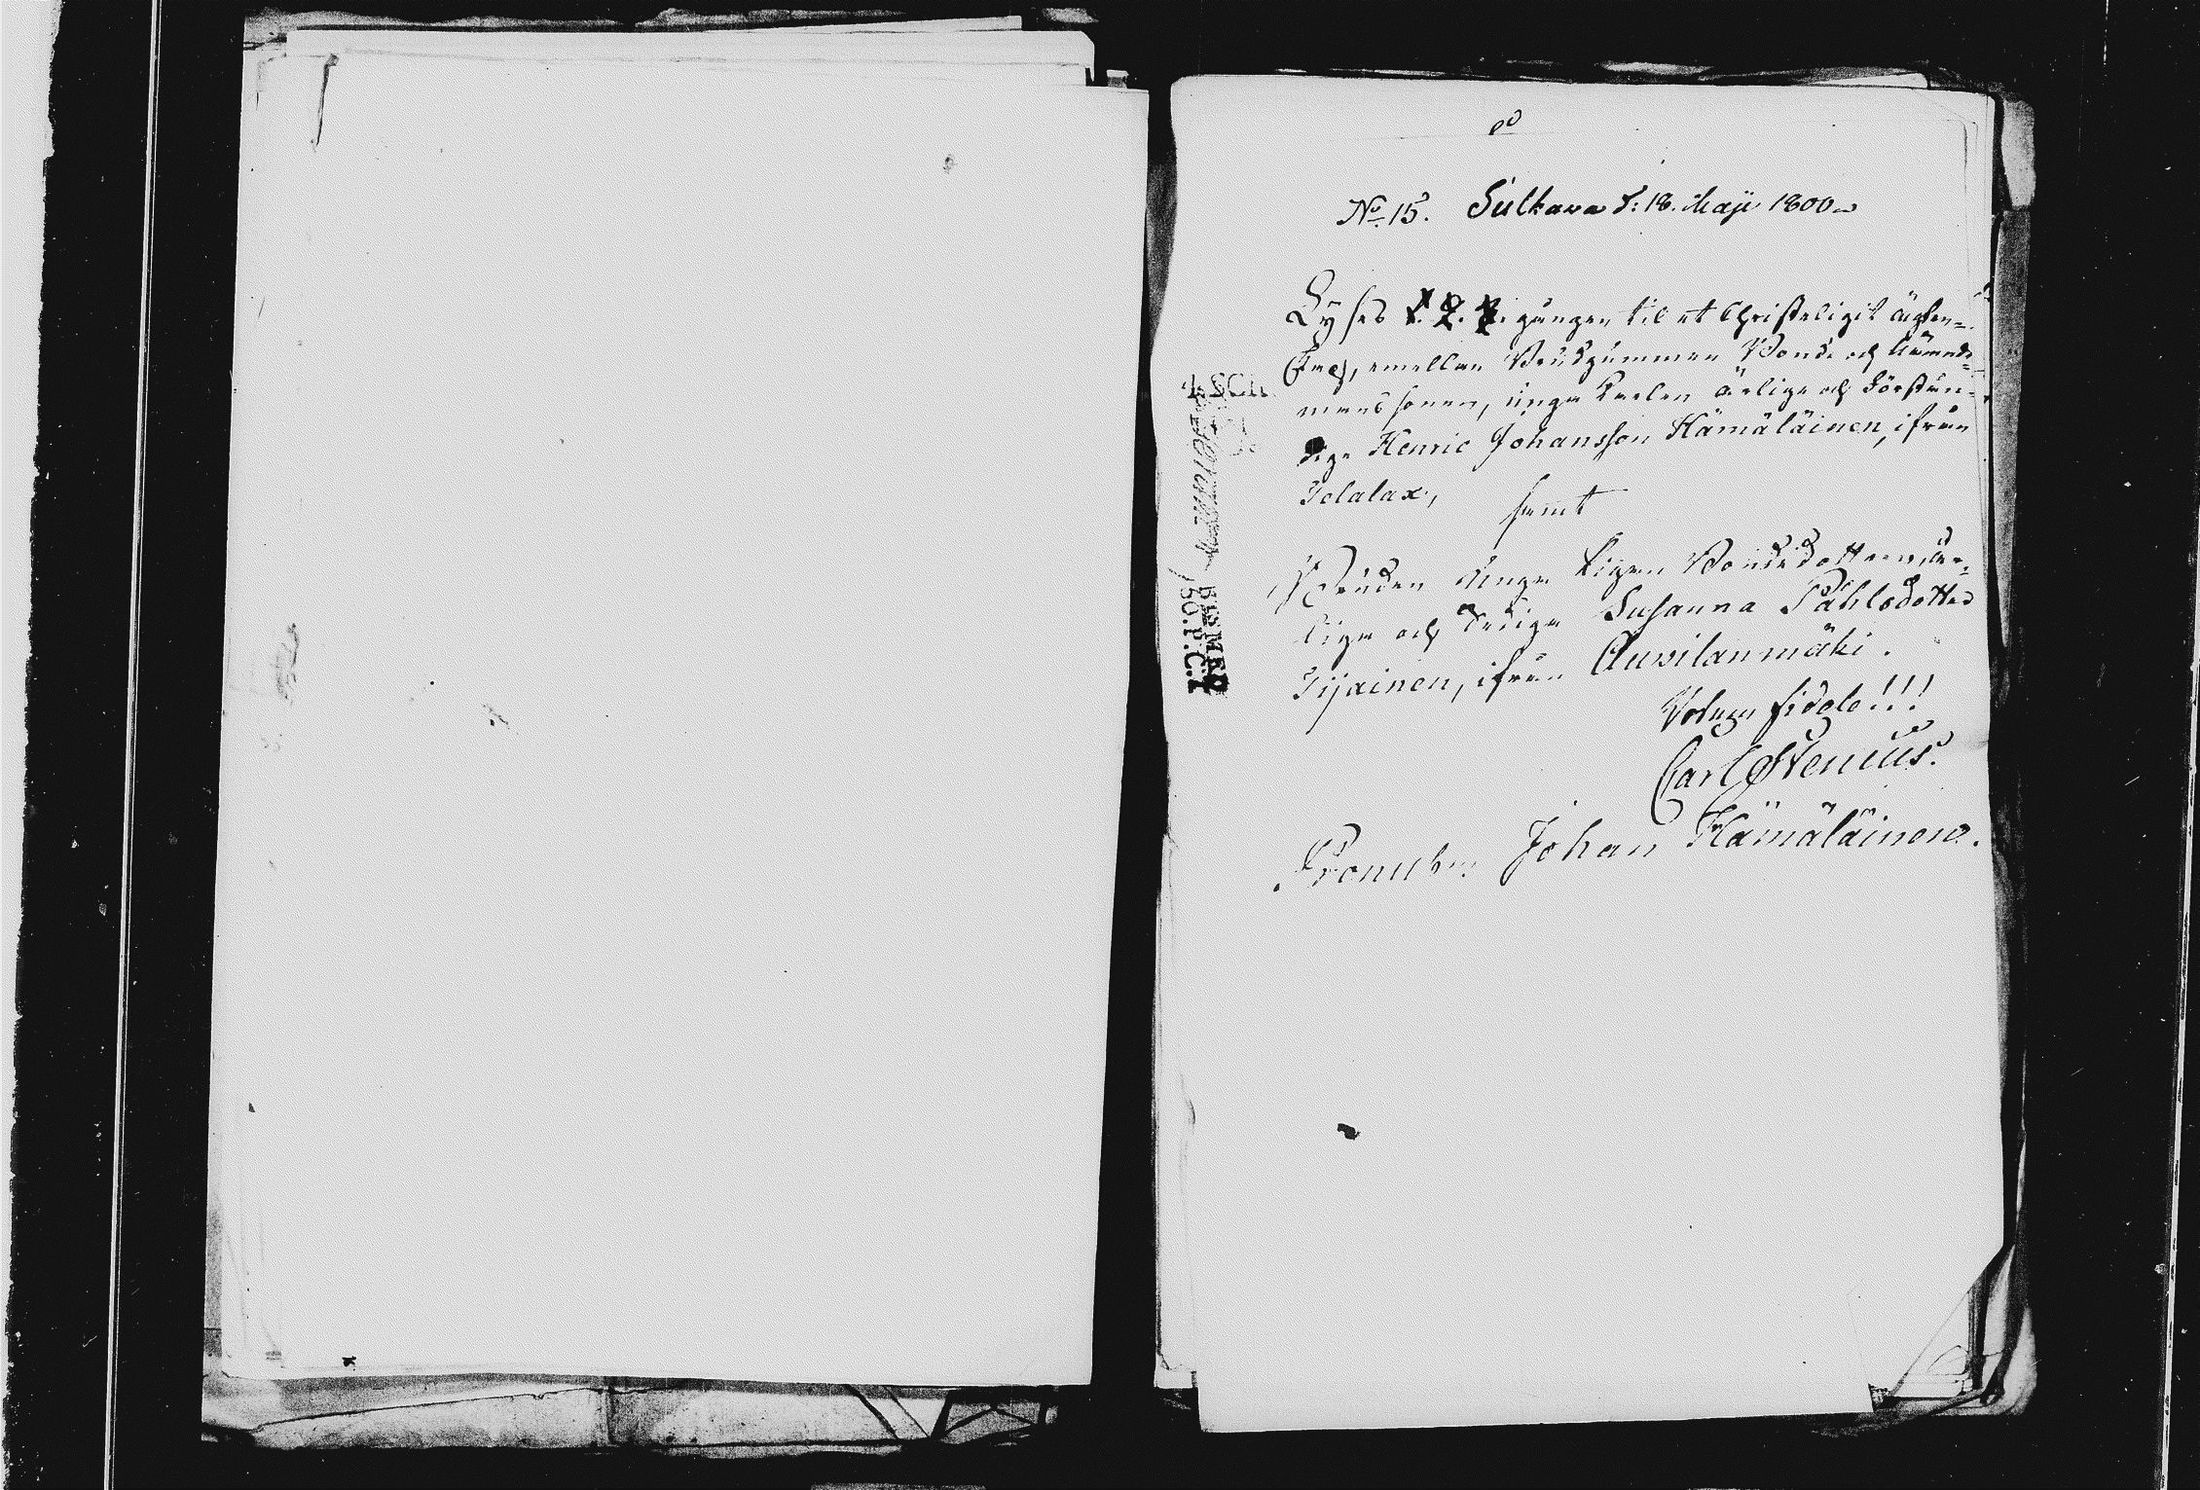 No 15. Sulkava d: 18. Maji 1800
Lyses 1. 2. 3. gången til et Christeligit ägten=
skap, emellan Brudgummen Bonde och Nämnde=
mans sonen, unga Karlen ärlige och Förstån=
dige Henric Johansson Hämäläinen, ifrån
Telalax,
samt
Bruden unga Pigan Bondedottren, är-
liga och dediga Susanna Påhlsdotter
Tijainen, ifrån Auvilanmäki.
fidele!!!
Carl Stenius.
Pronub: Johan Hämäläinen.